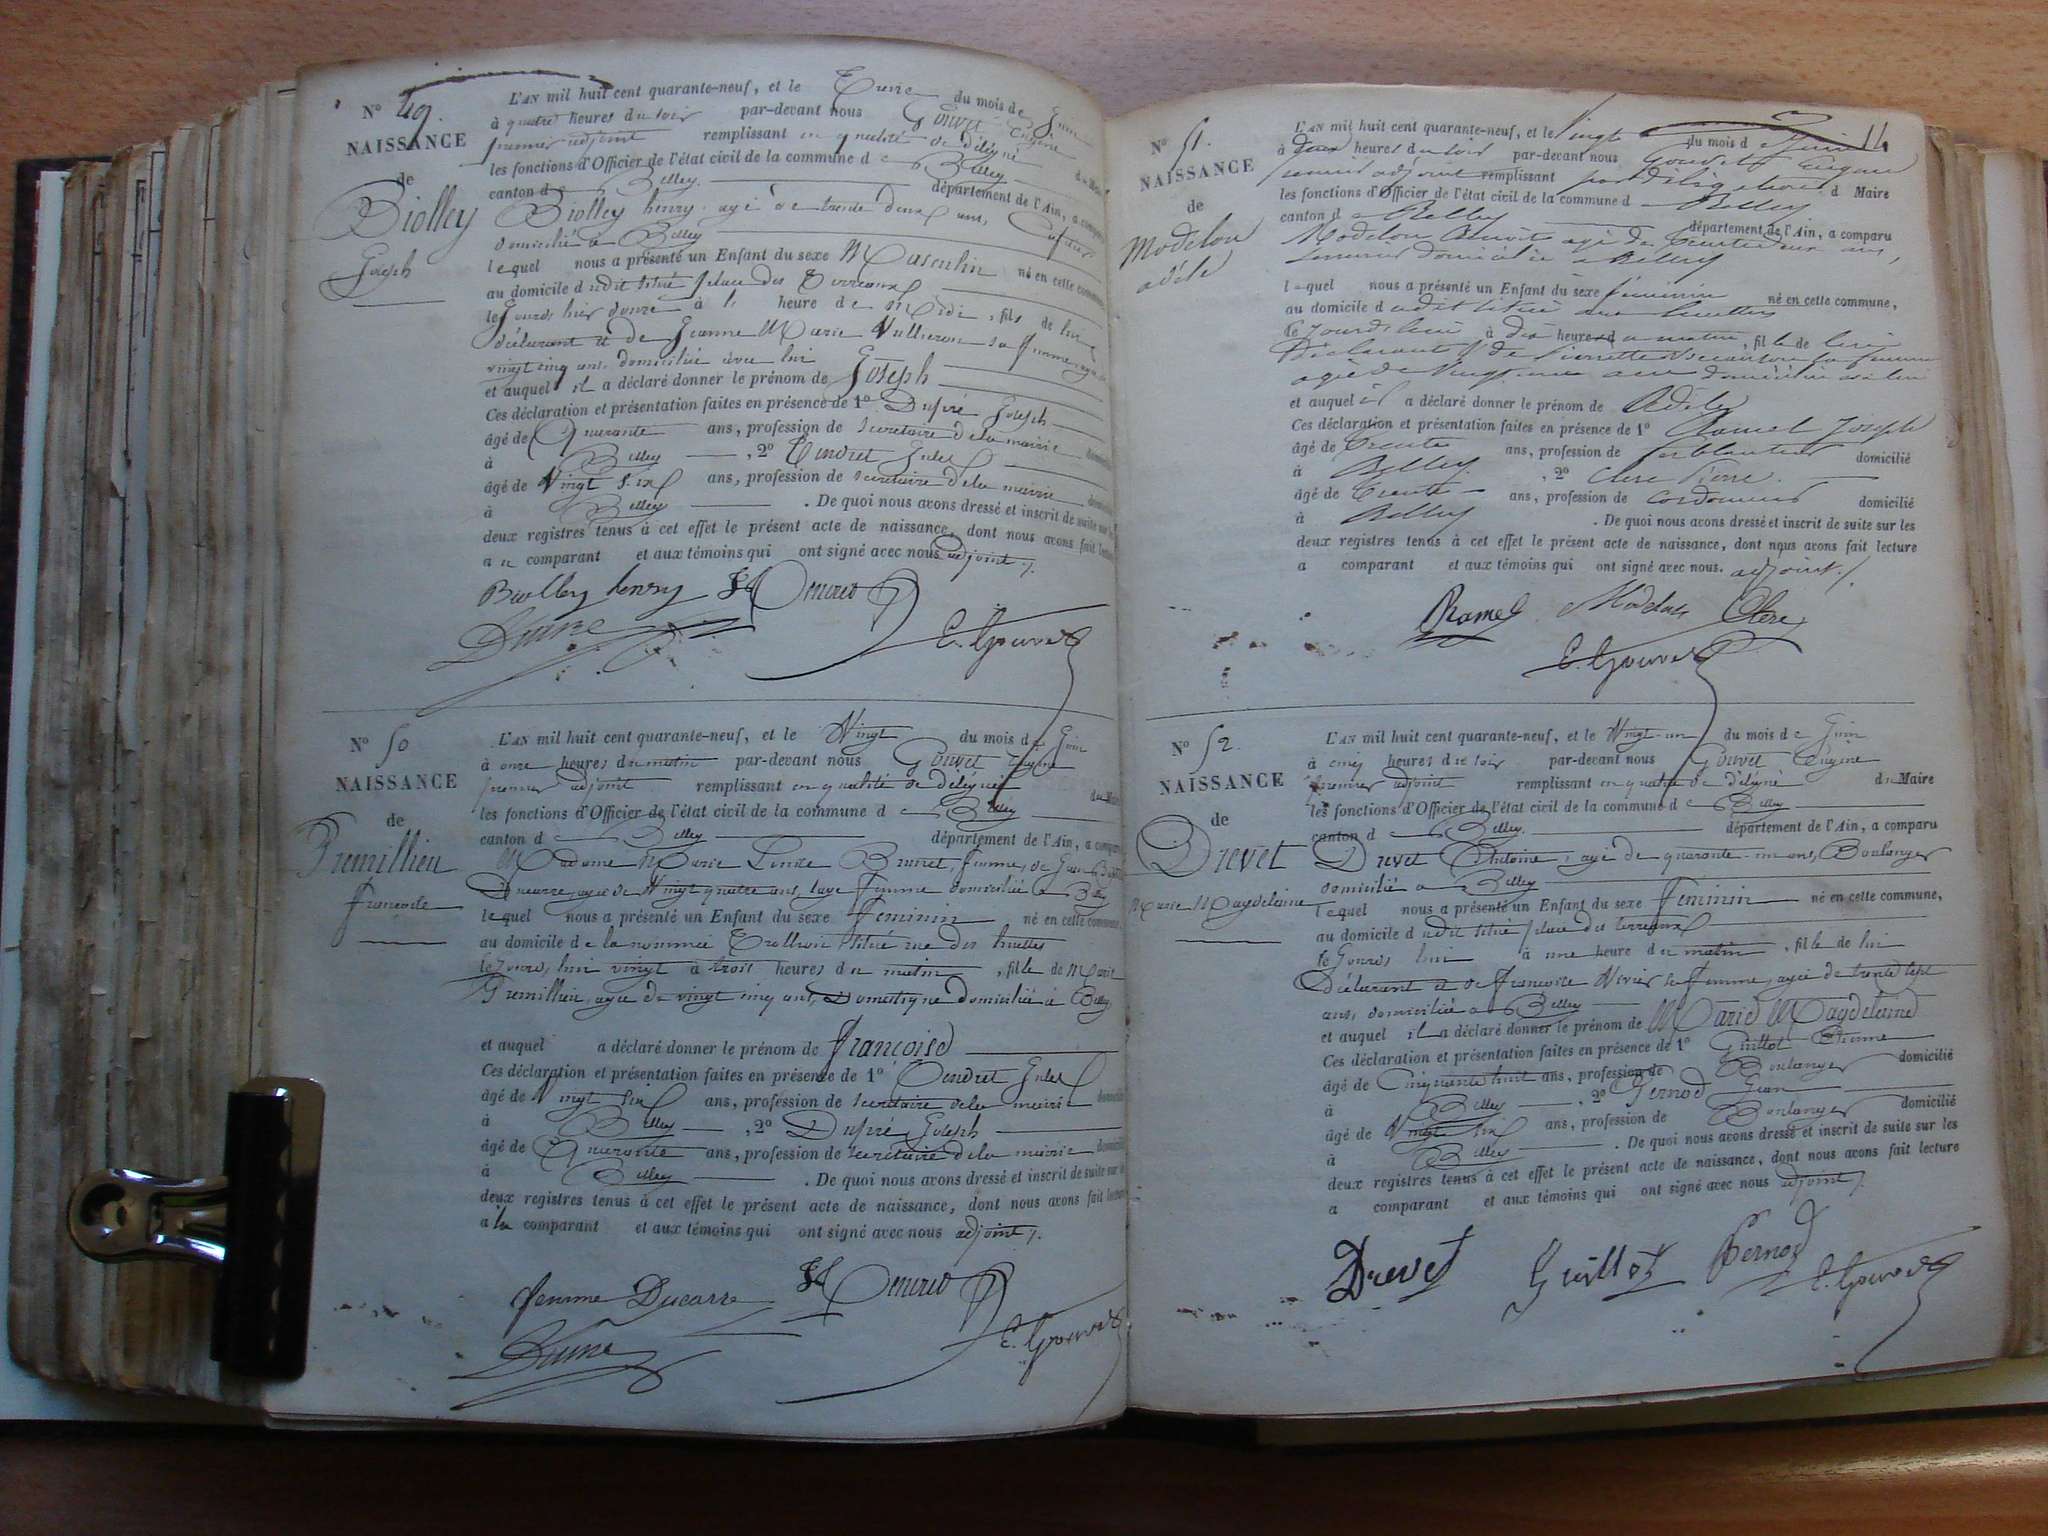 N° 49.
NAISSANCE
de
Biolley
Joseph
L'AN mil huit cent quarante-neuf, et le Treize du mois de Juin
à quatre heures du soir par-devant nous Gouvet Eugène
premier adjoint remplissant en qualité de délégué du Maire
les fonctions d'Officier de l'état civil de la commune de Belley
canton de Belley département de l'Ain, a comparu
Biolley henry, agé de trente deux ans,
domicilié à Belley
lequel nous a présenté un Enfant du sexe Masculin né en cette commune
au domicile dudit situé place des Terreaux
à heure de Midi, fils de lui
déclarant et de Jeanne Marie sa femme, agée de
vingt cinq ans, domiciliée avec lui
et auquel il a déclaré donner le prénom de Joseph
Ces déclaration et présentation faites en présence de 1° Dupré Joseph
âgé de Quarante ans, profession de secretaire de la mairie domicilié
à Belley, 2° Tendret Jules
âgé de Vingt six ans, profession de secretaire de la mairie domicilié
à Belley. De quoi nous avons dressé et inscrit de suite sur les
deux registres tenus à cet effet le présent acte de naissance, dont nous avons fait lecture
au comparant et aux témoins qui ont signé avec nous adjoint ./.
Biolley henry
E. Gouvet
N° 50
NAISSANCE
de
Premillieu
françoise
L'AN mil huit cent quarante-neuf, et le Vingt du mois de Juin
à onze heures du matin par-devant nous Gouvet Eugène
premier adjoint remplissant en qualité de délégué du Maire
les fonctions d'Officier de l'état civil de la commune de Belley
canton de Belley département de l'Ain, a comparu
Madame Marie Brunet, femme, de Jean
Ducarre, agée de Vingt quatre ans, sage femme domiciliée à Belley
lequel nous a présenté un Enfant du sexe feminin né en cette commune,
au domicile de la nommée situé rue des huettes
le jourd'hui vingt à trois heures du matin, fille de Marie
Premillieu, agée de vingt cinq ans, Domestique domiciliée à Belley
et auquel a déclaré donner le prénom de françoise
Ces déclaration et présentation faites en présence de 1° Tendret Jules
âgé de Vingt six ans, profession de secretaire de la mairie domicilié
à Belley, 2° Dupré Joseph
âgé de Quarante ans, profession de secretaire de la mairie domicilié
à Belley. De quoi nous avons dressé et inscrit de suite sur les
deux registres tenus à cet effet le présent acte de naissance, dont nous avons fait lecture
a la comparant et aux témoins qui ont signé avec nous adjoint ./.
femme Ducarre
E. Gouvet
14
N° 51.
NAISSANCE
de
Modelon
adéle
L'AN mil huit cent quarante-neuf, et le Vingt du mois d Juin
à deux heures du soir par-devant nous Gouvet Eugène
premier adjoint remplissant par délégation d Maire
les fonctions d'Officier de l'état civil de la commune d Belley
canton d Belley département de l'Ain, a comparu
Modelon Benoît agé de trente deux ans,
domicilié à Belley
lequel nous a présenté un Enfant du sexe féminin né en cette commune,
au domicile dudit situé rue huettes
le jourd'hui à dix heures du matin, fille de lui
Déclarant & de Pierrette sa femme
agée de Vingt ans domiciliée avec lui
et auquel il a déclaré donner le prénom de Adèle
Ces déclaration et présentation faites en présence de 1° Ramel Joseph
âgé de Trente ans, profession de ferblantier domicilié
à Belley, 2° Clerc Pierre
âgé de Trente ans, profession de Cordonnier domicilié
à Belley. De quoi nous avons dressé et inscrit de suite sur les
deux registres tenus à cet effet le présent acte de naissance, dont nous avons fait lecture
a comparant et aux témoins qui ont signé avec nous. adjoint ./.
Ramel Modelon Clerc
E. Gouvet
N° 52.
NAISSANCE
de
Drevet
Marie Magdeleine
L'AN mil huit cent quarante-neuf, et le Vingt-un du mois de Juin
à cinq heures du soir par-devant nous Gouvet Eugène
premier adjoint remplissant en qualité de délégué du Maire
les fonctions d'Officier de l'état civil de la commune de Belley
canton de Belley département de l'Ain, a comparu
Drevet Antoine, agé de quarante-un ans, Boulanger
domicilié à Belley
lequel nous a présenté un Enfant du sexe feminin né en cette commune,
au domicile dudit situé place des terreaux
le jourd'hui à une heure du matin, fille de lui
Déclarant et de françoise sa femme, agée de trente sept
ans, domiciliée à Belley
et auquel il a déclaré donner le prénom de Marie Magdeleine
Ces déclaration et présentation faites en présence de 1° Guillot Etienne
âgé de Cinquante huit ans, profession de Boulanger domicilié
à Belley, 2° Pernod Jean
âgé de Vingt six ans, profession de Boulanger domicilié
à Belley. De quoi nous avons dressé et inscrit de suite sur les
deux registres tenus à cet effet le présent acte de naissance, dont nous avons fait lecture
a comparant et aux témoins qui ont signé avec nous adjoint ./.
Drevet Guillot Pernod E. Gouvet